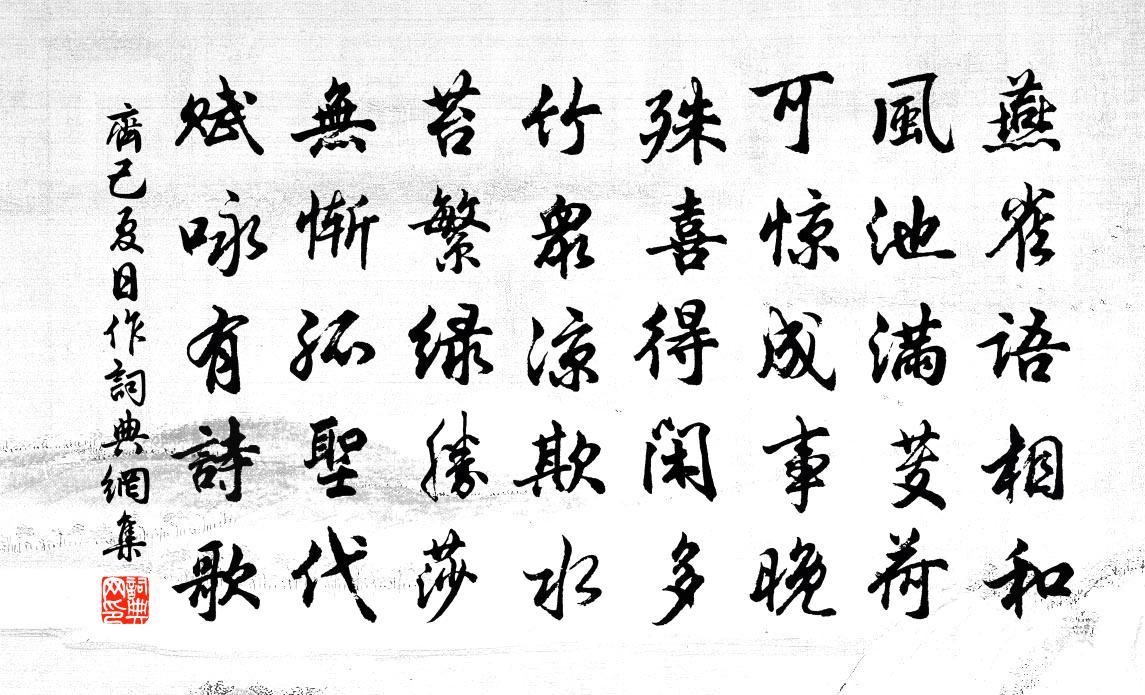 燕雀語相和
風池滿芰荷
可惊成事晚
殊喜得閑多
竹衆涼欺水
苔繁綠勝莎
無慚孤聖代
賦咏有詩歌
齊己夏日作詞典網集
詞典网印